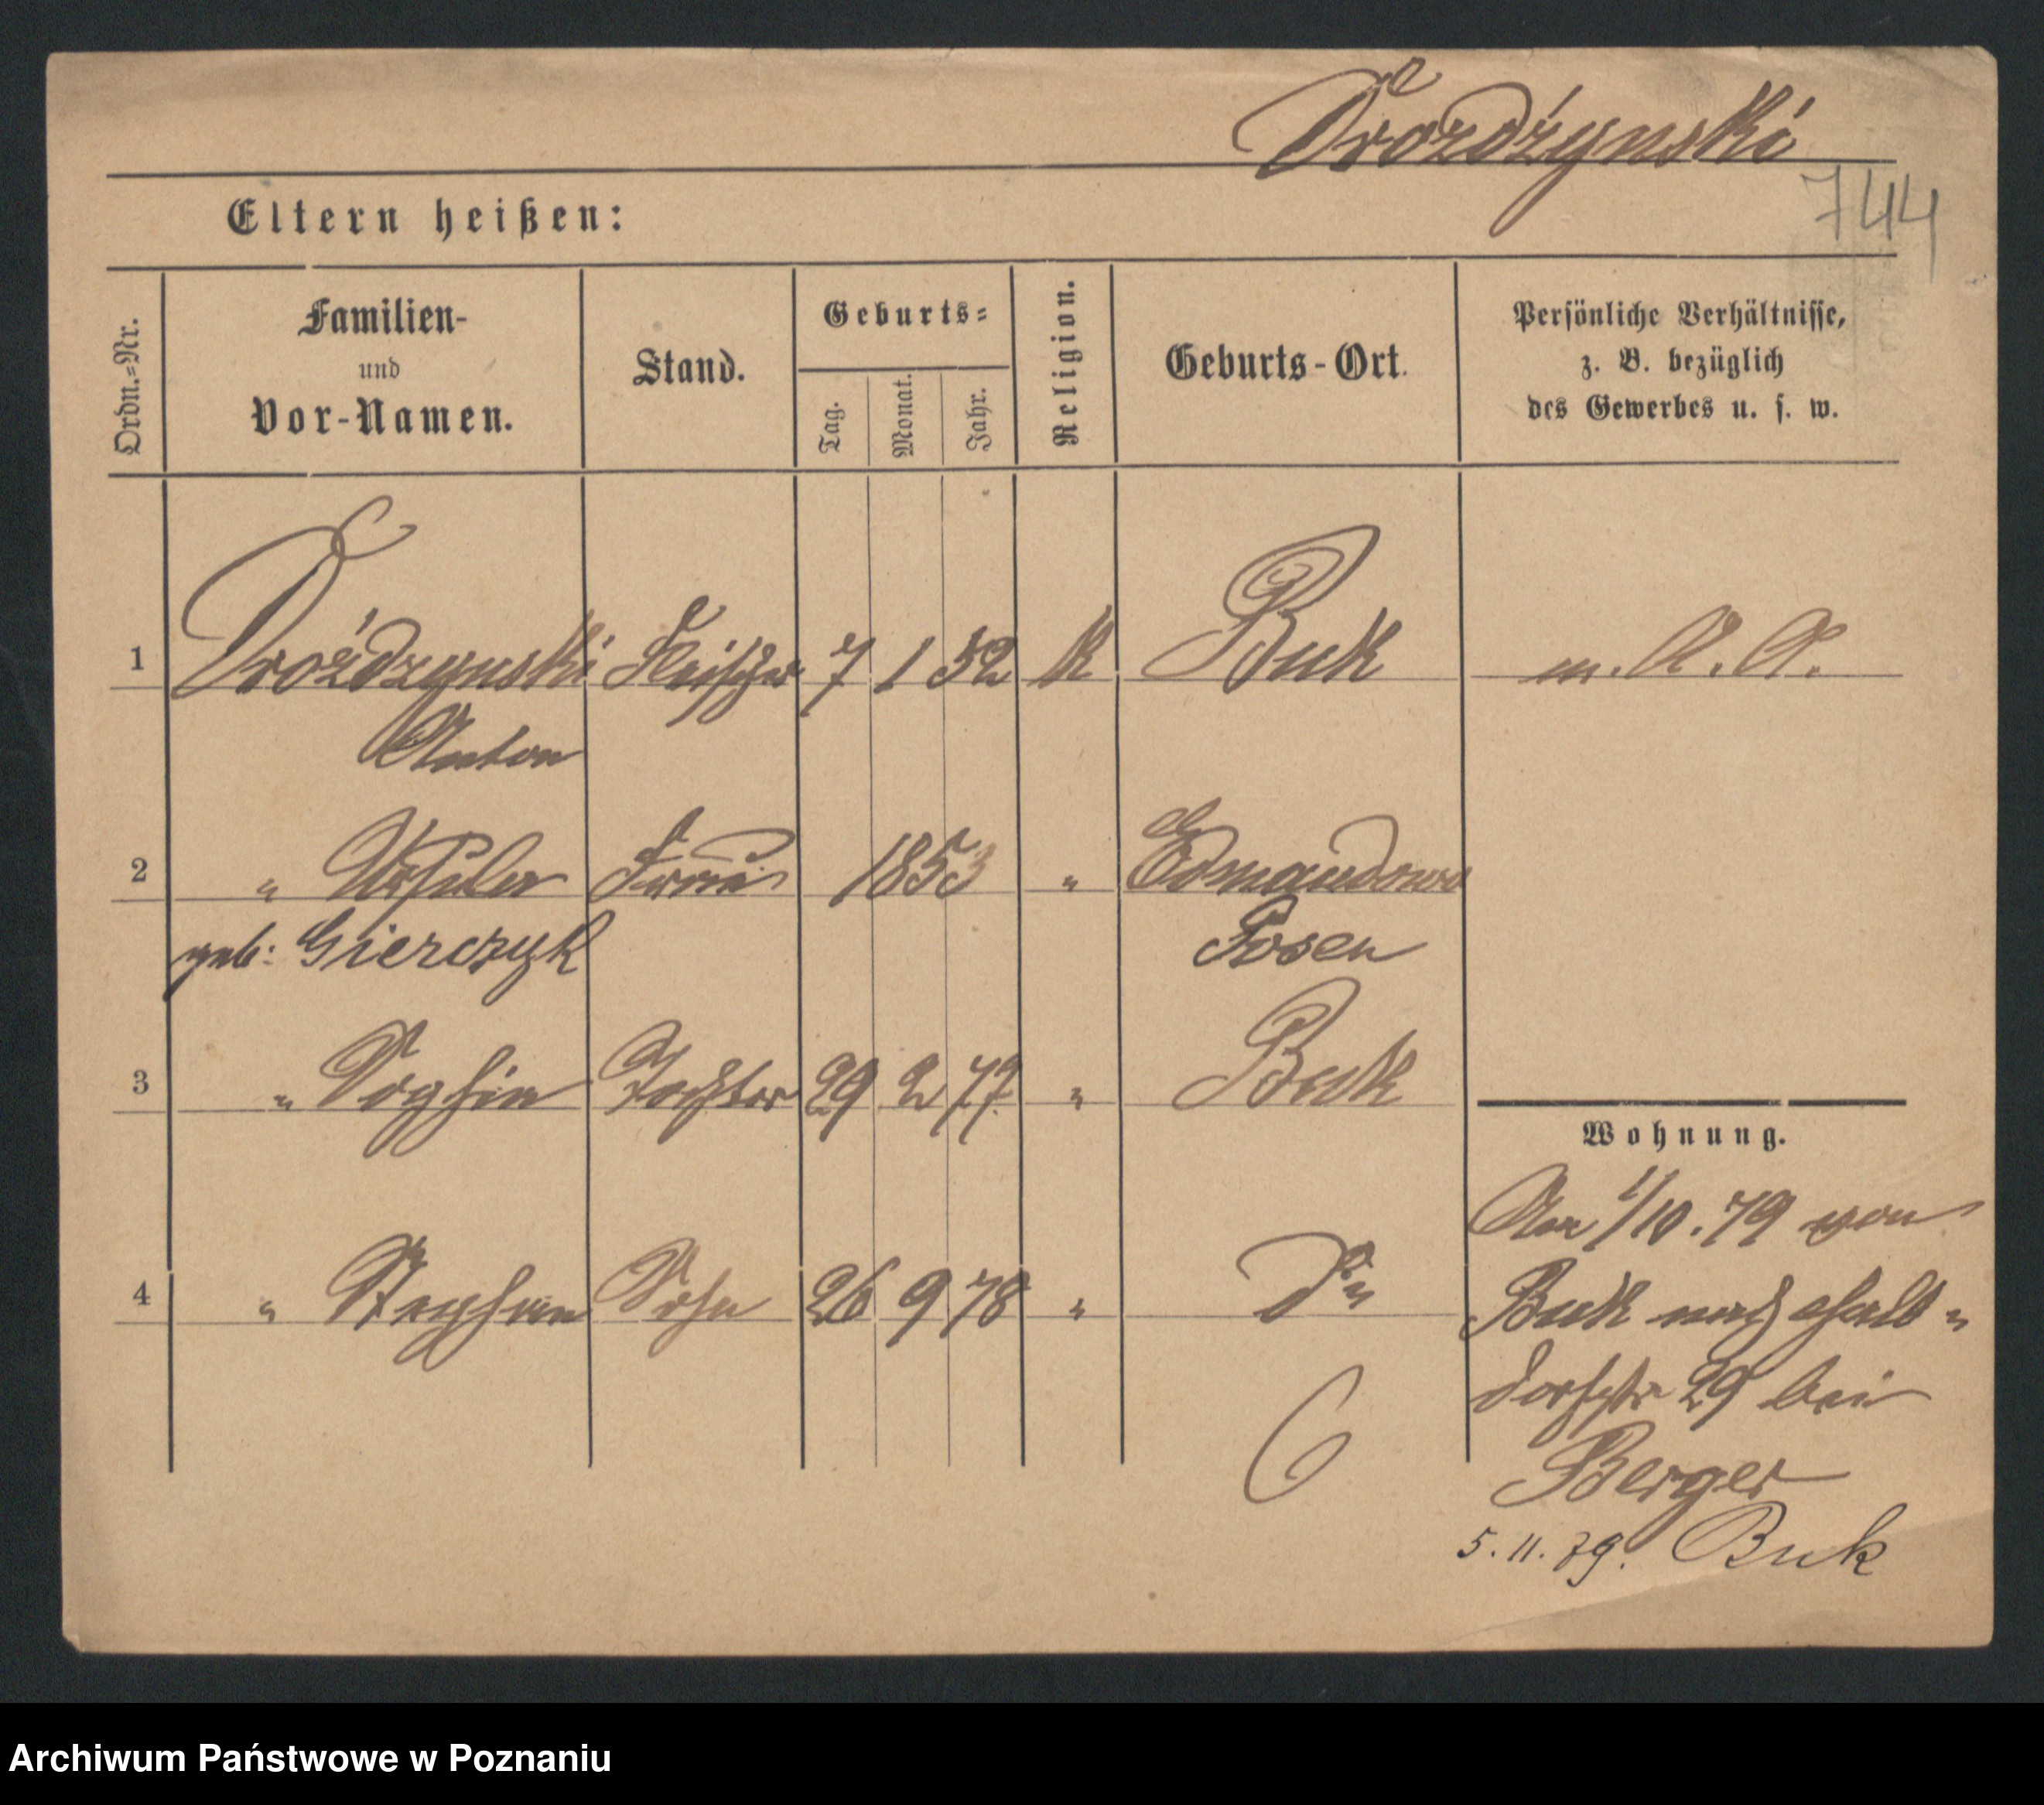 Drożdżynski
744
Eltern heißen:
Ordn.=Nr.
Familien-
und
Vor-Namen.
Stand.
Geburts=
Tag.
Monat.
Jahr.
Religion.
Geburts-Ort.
Persönliche Verhältnisse,
z. B. bezüglich
des Gewerbes u. s. w.
1 Drożdzynski Fleischer 7 1 52 K Buk m. A. A.
Anton
2 " Ursula Frau 1853 " Edmundowo
geb: Gierczyk Posen
3 " Sophia Tochter 29 2 77 " Buk
Wohnung.
Am 1/10. 79 von
4 " Stephan Sohn 26 9 78 " do
Buk nach Halb=
dorfstr 29 bei
Berger
5. 11. 79. Buk
Archiwum Państwowe w Poznaniu